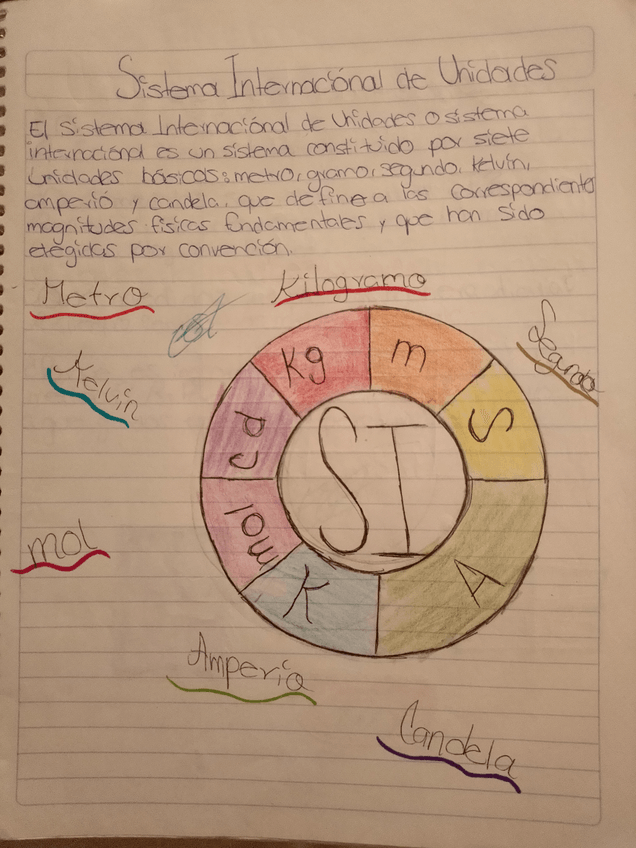 Sistema Internaciónal de Unidades
El sistema Internaciónal de Unidades o sistema
internaciónal es un sistema constituido por siete
unidades básicas: metro, gramo, segundo, kelvin,
amperio y candela, que define a las correspondiente
magnitudes físicas fundamentales y que han sido
elegidas por convención.
Metro
Kilogramo
Segundo
Kelvin
kg
m
s
cd
SI
mol
mol
K
A
Amperio
Candela